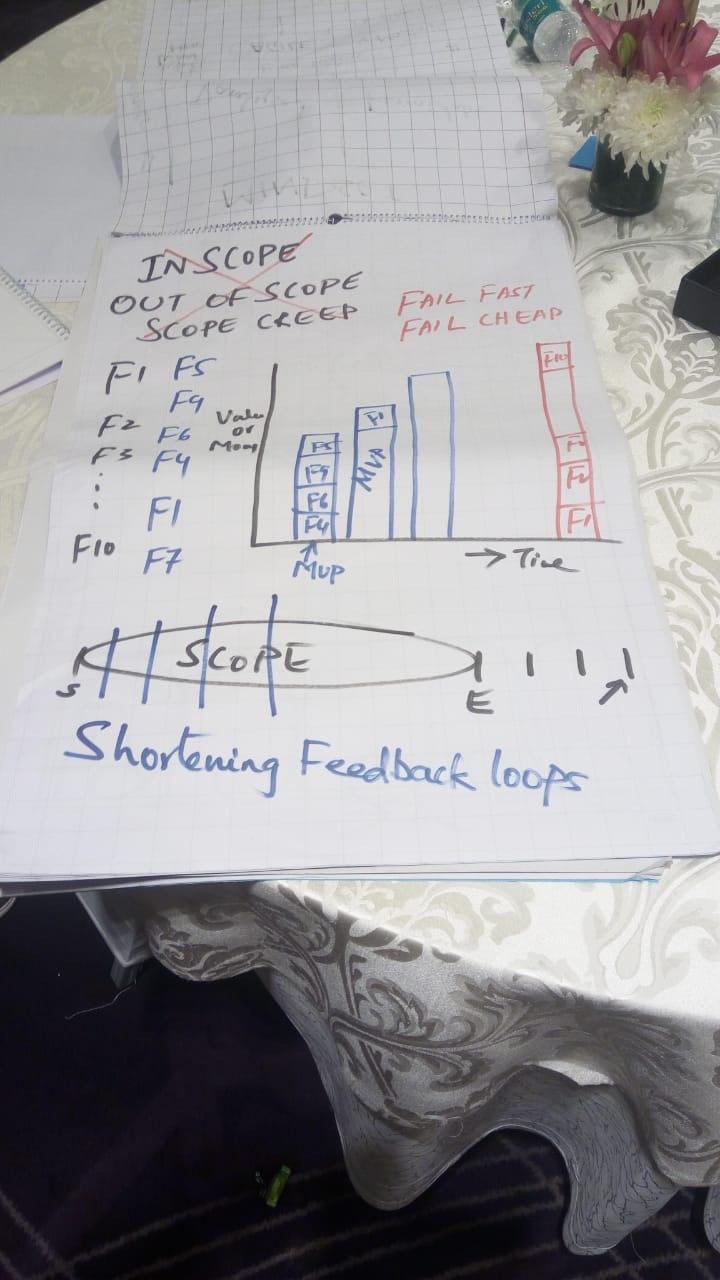 IN SCOPE
OUT OF SCOPE
SCOPE CREEP
FAIL FAST
FAIL CHEAP
F1
F2
F3
F10
F5
F9
F6
F4
F1
F7
Value
or
F5
F9
F6
F4
MVP
F1
MVP
F10
F1
→ Time
SCOPE
S
E
Shortening Feedback loops